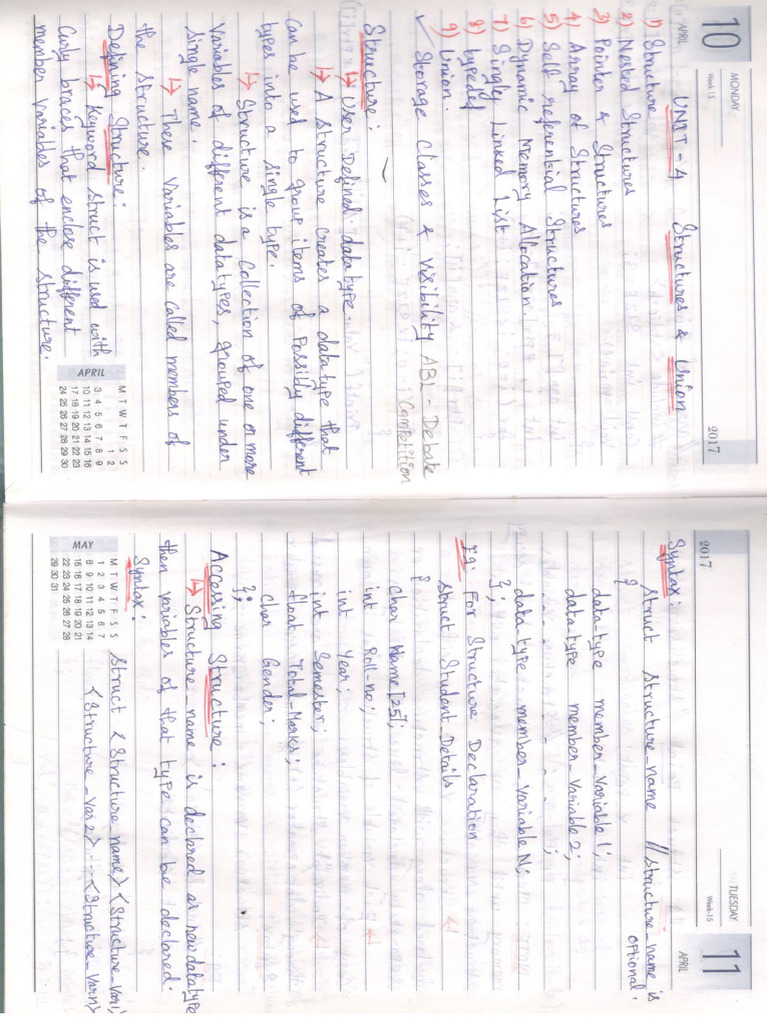 10
APRIL
MONDAY
Week 15
2017
UNIT - 4 Structures & Union
1) Structure
2) Nested Structures
3) Pointer & Structures
4) Array of Structures
5) Self referential Structures
6) Dynamic Memory Allocation.
7) Singly Linked List
8) typedef
9) Union.
✓ Storage classes & visibility ABL - Debate
Competition
Structure:
↳ User Defined datatype.
↳ A structure creates a datatype that
can be used to group items of Possibly different
types into a single type.
↳ Structure is a Collection of one or more
Variables of different datatypes, grouped under
single name.
↳ These Variables are called members of
the structure.
Defining Structure:
↳ Keyword struct is used with
Curly braces that enclose different
member variables of the structure.
APRIL
M T W T F S S
1 2
3 4 5 6 7 8 9
10 11 12 13 14 15 16
17 18 19 20 21 22 23
24 25 26 27 28 29 30
2017
TUESDAY
Week 15
APRIL
11
Syntax:
Struct Structure_name // structure_name is
optional.
{
data-type member_variable 1;
data-type member_variable 2;
- - - - ;
data type member_variable N;
};
Eg: For Structure Declaration
struct Student_Details
{
char Name[25];
int Roll-no;
int Year;
int Semester;
float Total_Marks;
char Gender;
};
Accessing Structure:
↳ Structure name is declared as new datatype
then variables of that type can be declared.
Syntax:
Struct <Structure_name> <Structure_Var1,
<Structure_Var2> ... <Structure_Varn>
MAY
M T W T F S S
1 2 3 4 5 6 7
8 9 10 11 12 13 14
15 16 17 18 19 20 21
22 23 24 25 26 27 28
29 30 31